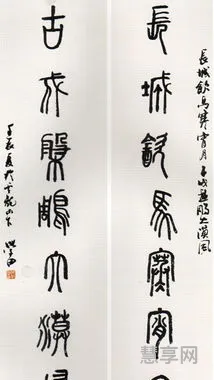 長城飲馬寒宵月古戍盤鵰大漠風
長城飲馬寒宵
古戍盤鵰大漠
慧享网